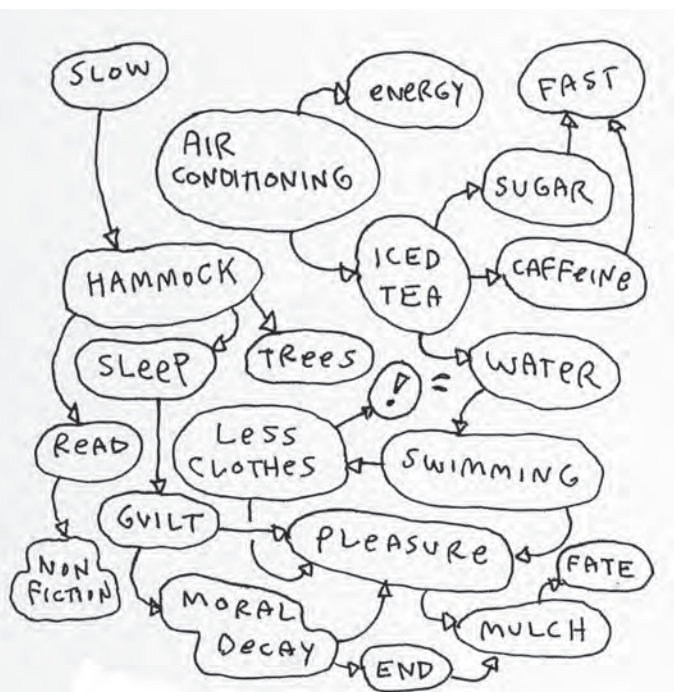 SLOW
ENERGY
FAST
AIR
CONDITIONING
SUGAR
HAMMOCK
ICED
TEA
CAFFEINE
SLEEP
TREES
! =
WATER
READ
LESS
CLOTHES
SWIMMING
GUILT
PLEASURE
NON
FICTION
FATE
MORAL
DECAY
MULCH
END